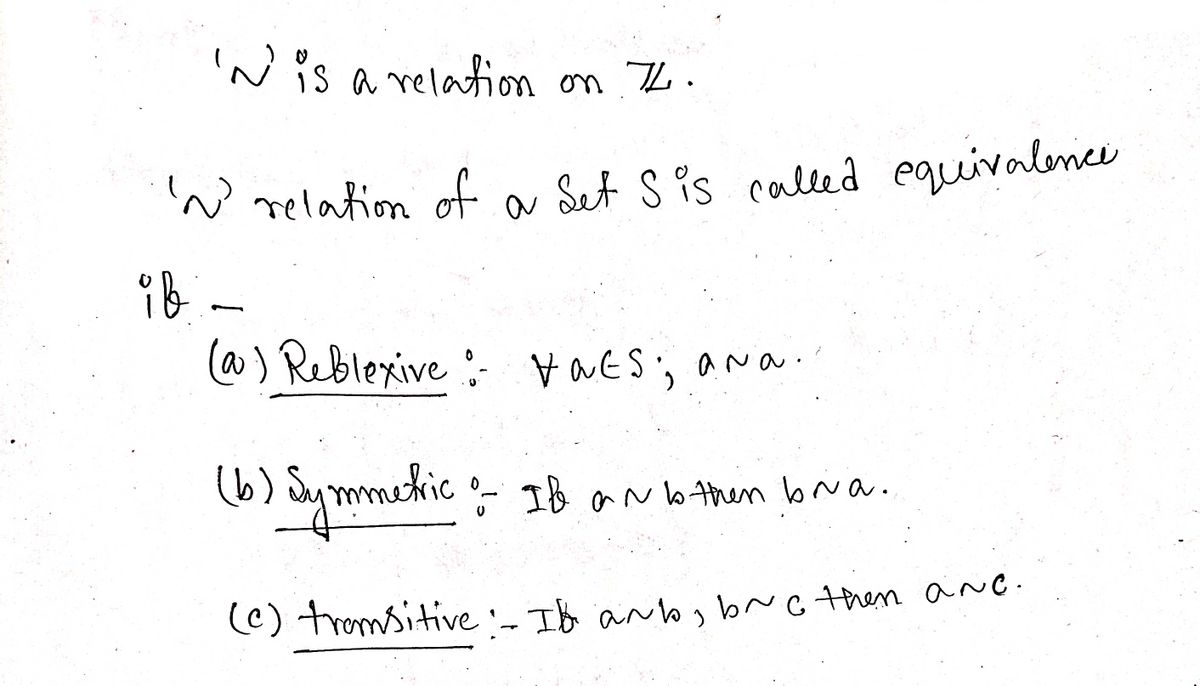 '~' is a relation on ℤ.
'~' relation of a Set S is called equivalence
if –
(a) Reflexive :- ∀ a ∈ S ; a ~ a.
(b) Symmetric :- If a ~ b then b ~ a.
(c) transitive :- If a ~ b , b ~ c then a ~ c.